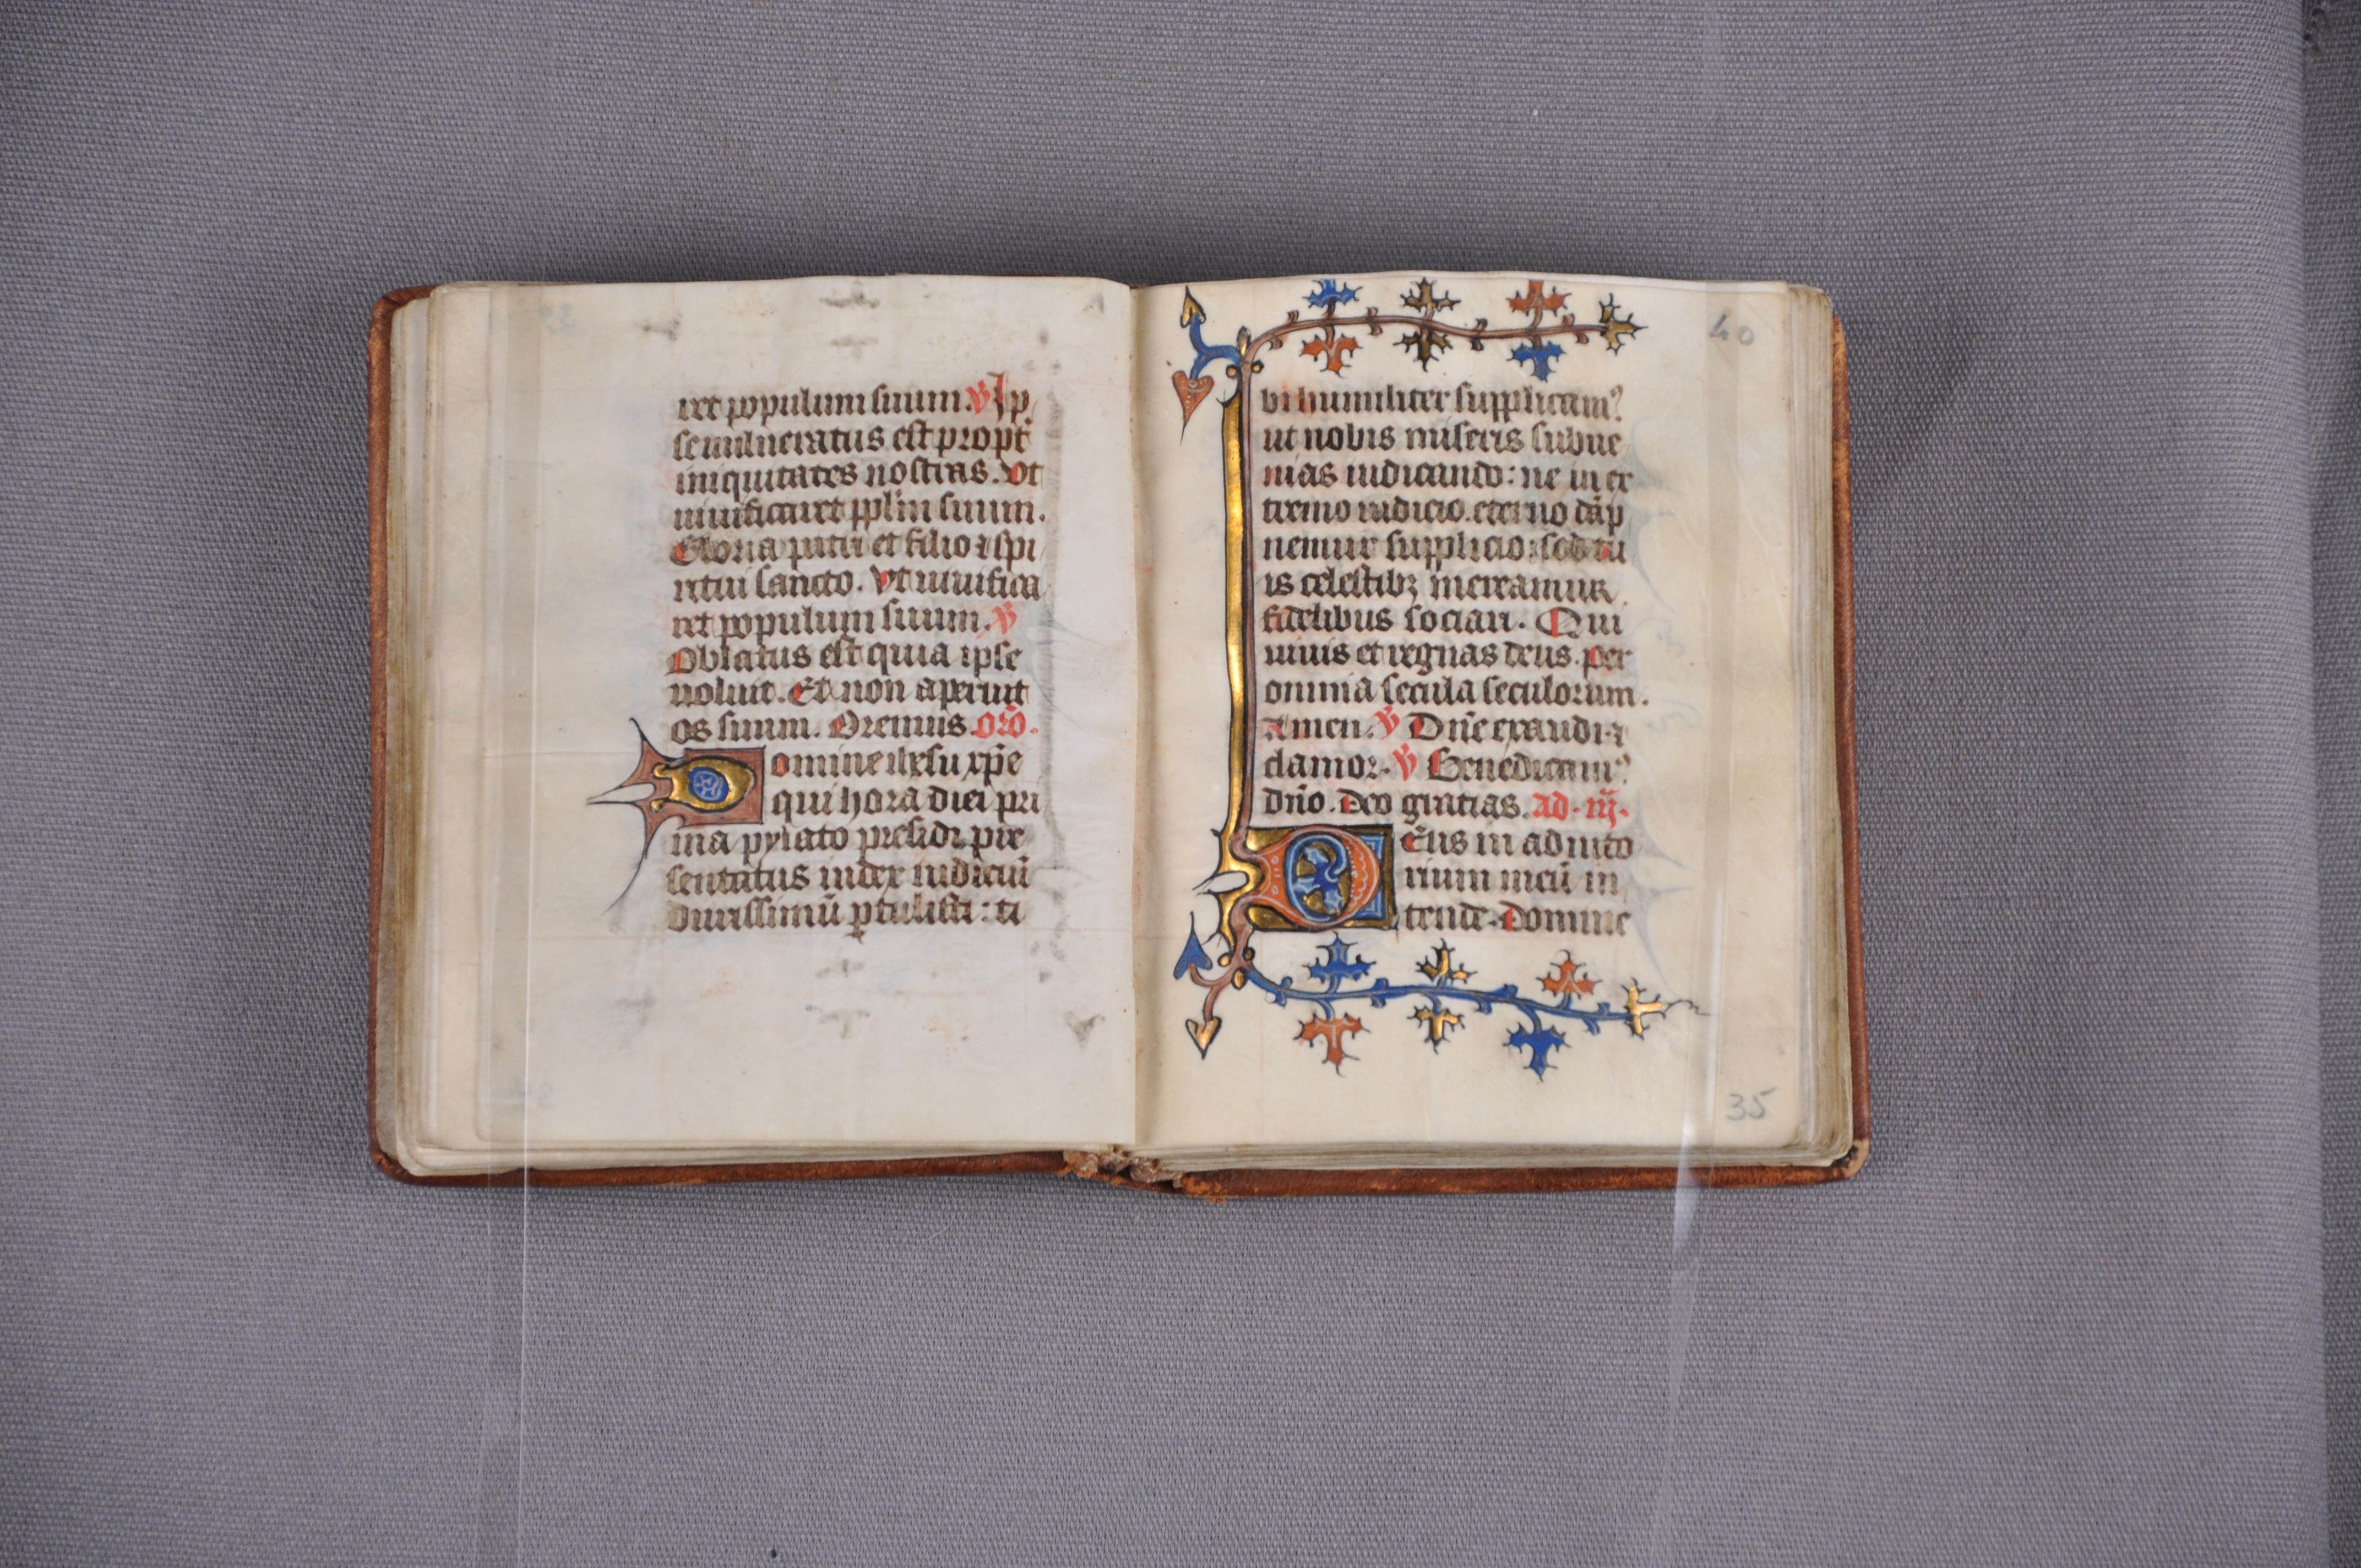 ret populum suum. ℣ Ip
se vulneratus est propt̄
iniquitates nostras. Vt
uiuificaret ppl̄m suum.
Gloria patri et filio ⁊ spi
ritui sancto. Vt uiuifica
ret populum suum. ℣
Oblatus est quia ipse
uoluit. Et non aperuit
os suum. Oremus. or̄o.
Domine ihesu xp̄e
qui hora diei pri
ma pylato presidi pre
sentatus iudex iudiciū
durissimū ꝑtulisti: ti
40
bi humiliter supplicamꝰ
ut nobis miseris subue
nias iudicando: ne in ex
tremo iudicio eterno dāp
nemur supplicio: sed tu
is celestibꝫ mereamur
fidelibus sociari. Qui
uiuis et regnas deus. per
omnia secula seculorum.
Amen. ℣ Dn̄e exaudi ⁊
clamor. ℣ Benedicamꝰ
dn̄o. Deo gratias. ad. iij.
Deus in adiuto
rium meū in
tende. Domine
35